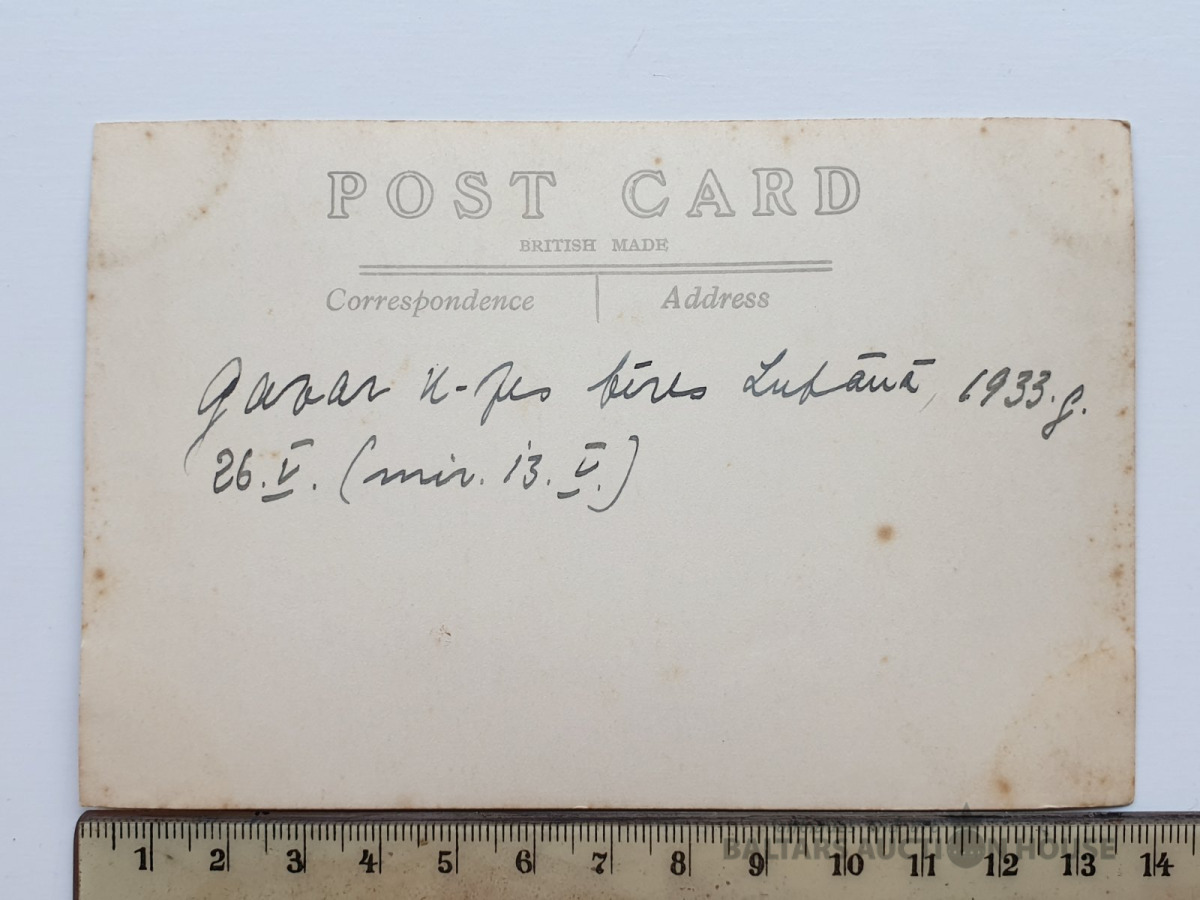 POST CARD
BRITISH MADE
Correspondence Address
bēres Lubānā, 1933. g.
26. V. (mir. 13. V.)
1 2 3 4 5 6 7 8 9 10 11 12 13 14
BALTARS AUCTION HOUSE